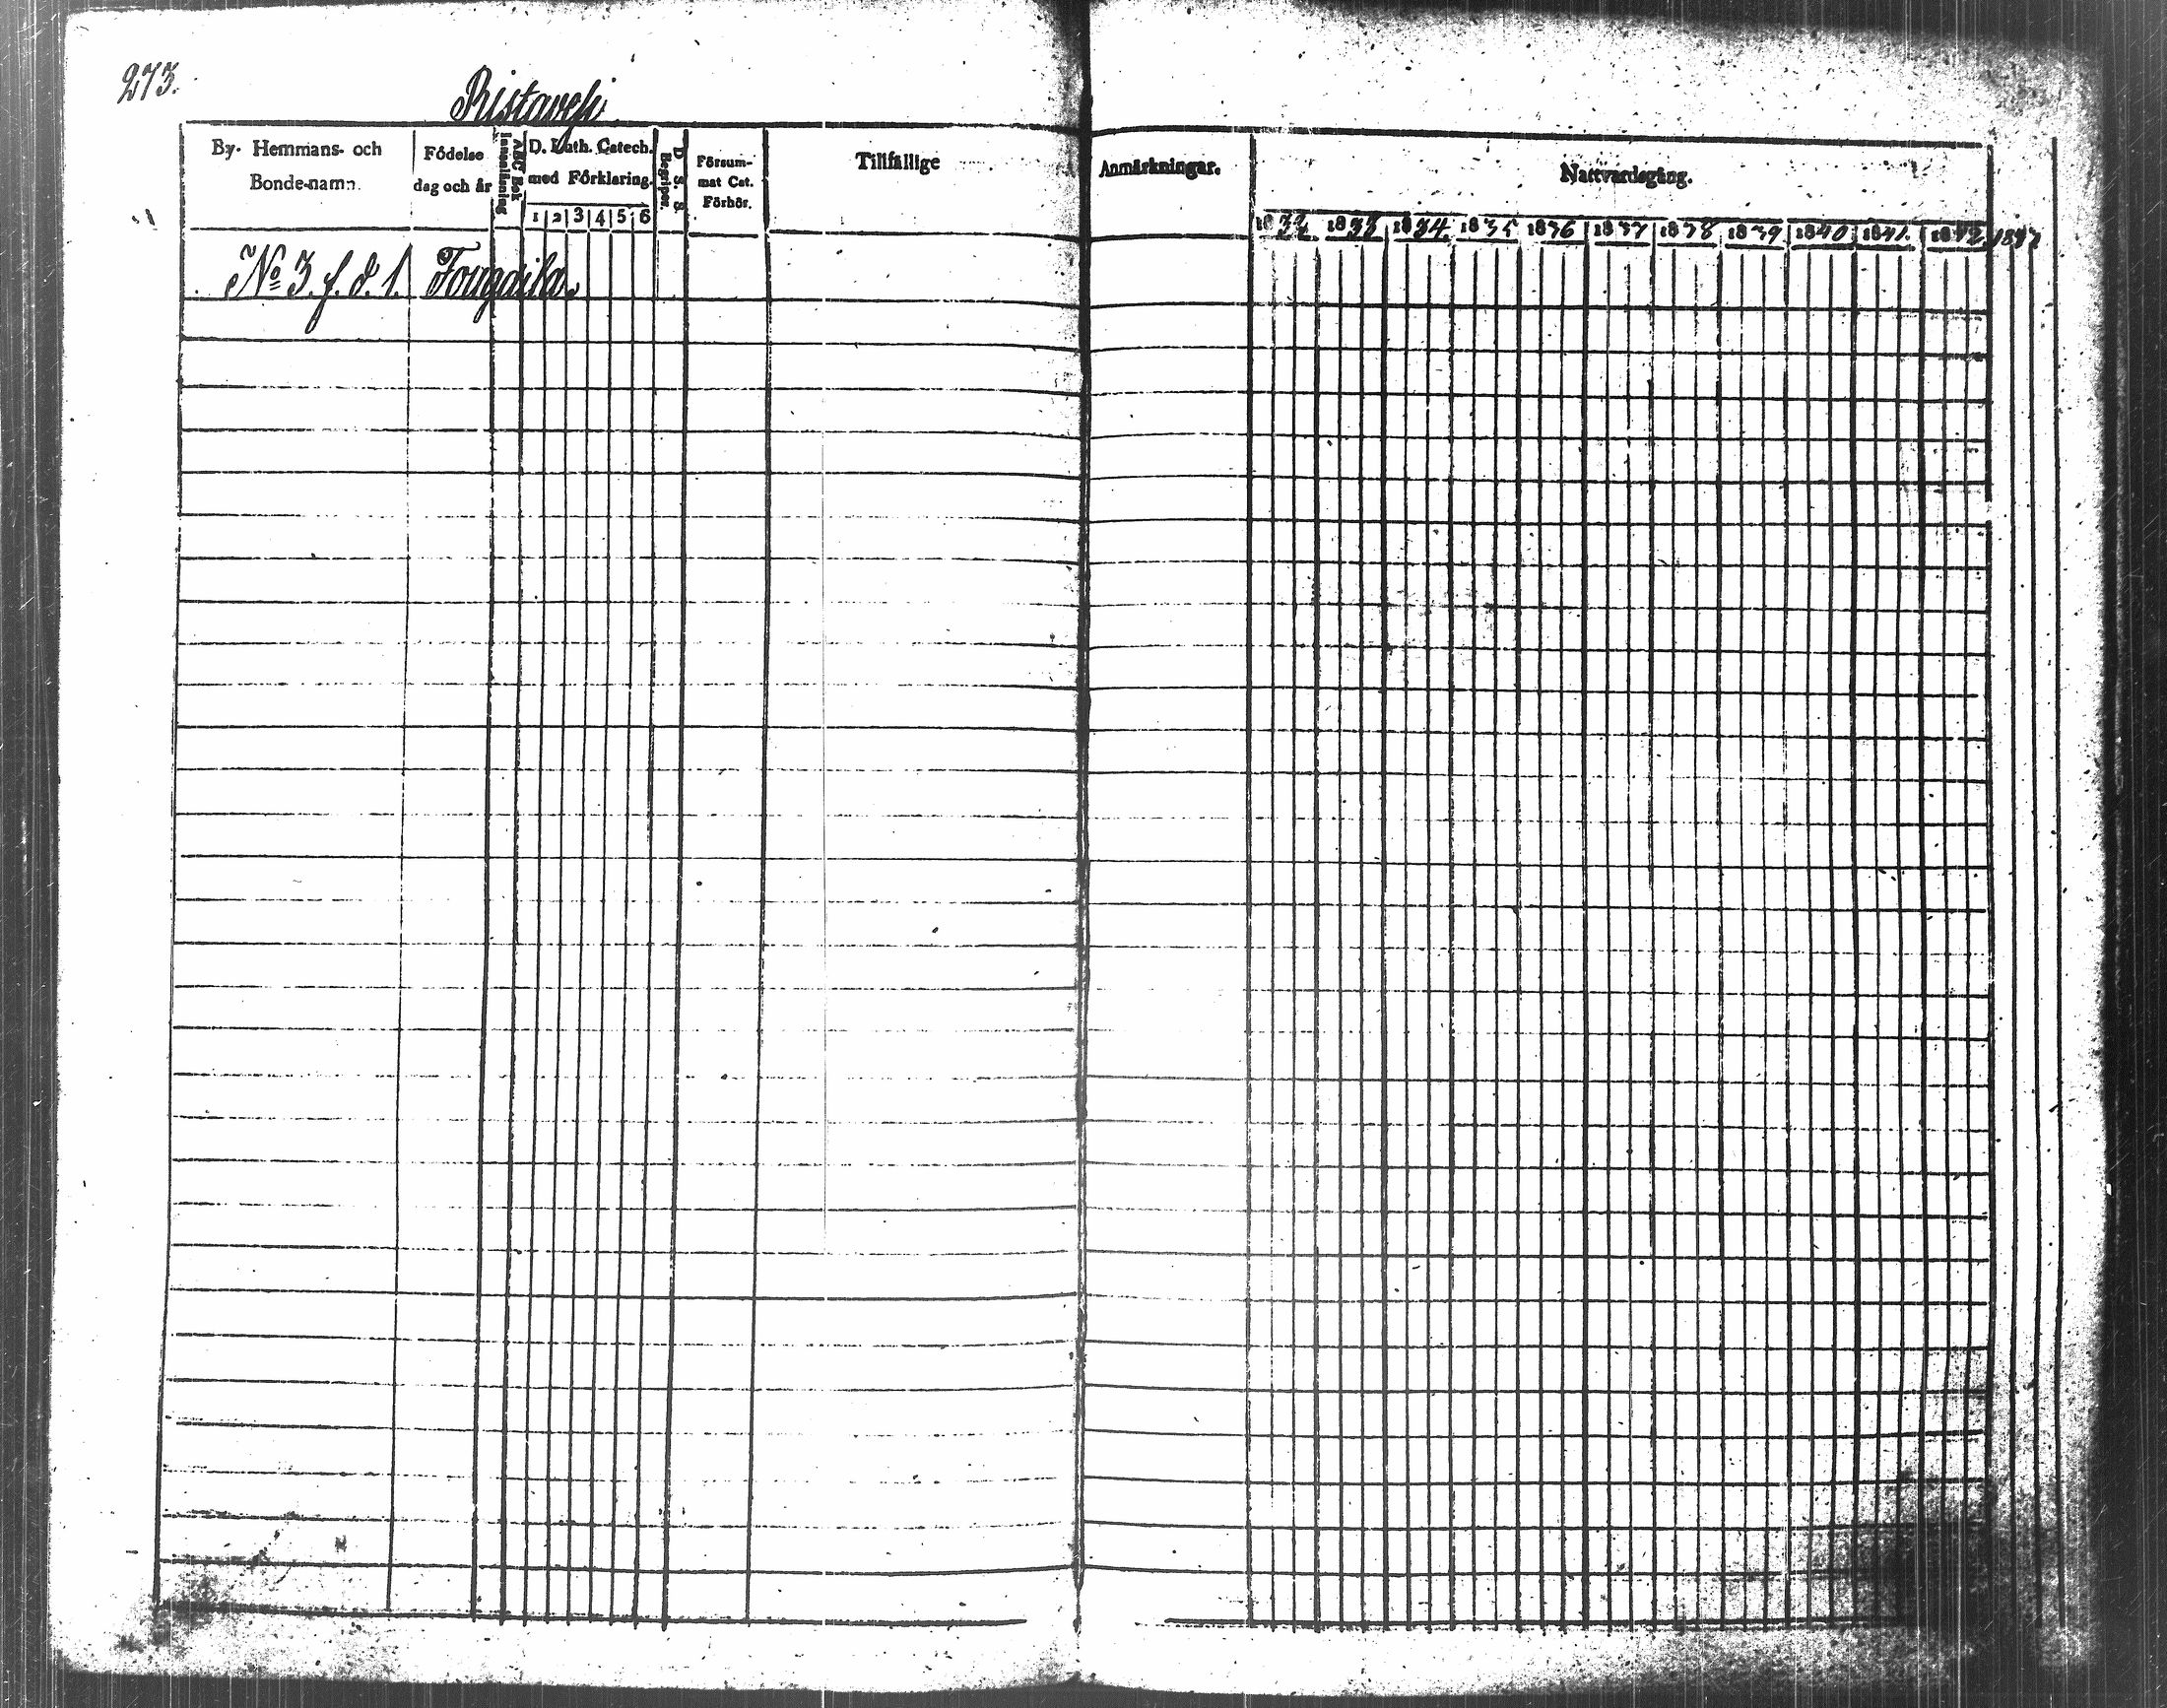 273.
Ristavesi
By- Hemmans- och Bonde-namn.
Födelse dag och år
Innanläsning
ABC Bok
D. Luth. Catech. med Förklaring.
1 2 3 4 5 6
D. S. S.
Begriper.
Försum- mat Cat. Förhör.
Tillfällige
Anmärkningar.
Nattvardsgång.
1832 1833 1834 1835 1836 1837 1838 1839 1840 1841. 1842.
No 3. f. d. 1.